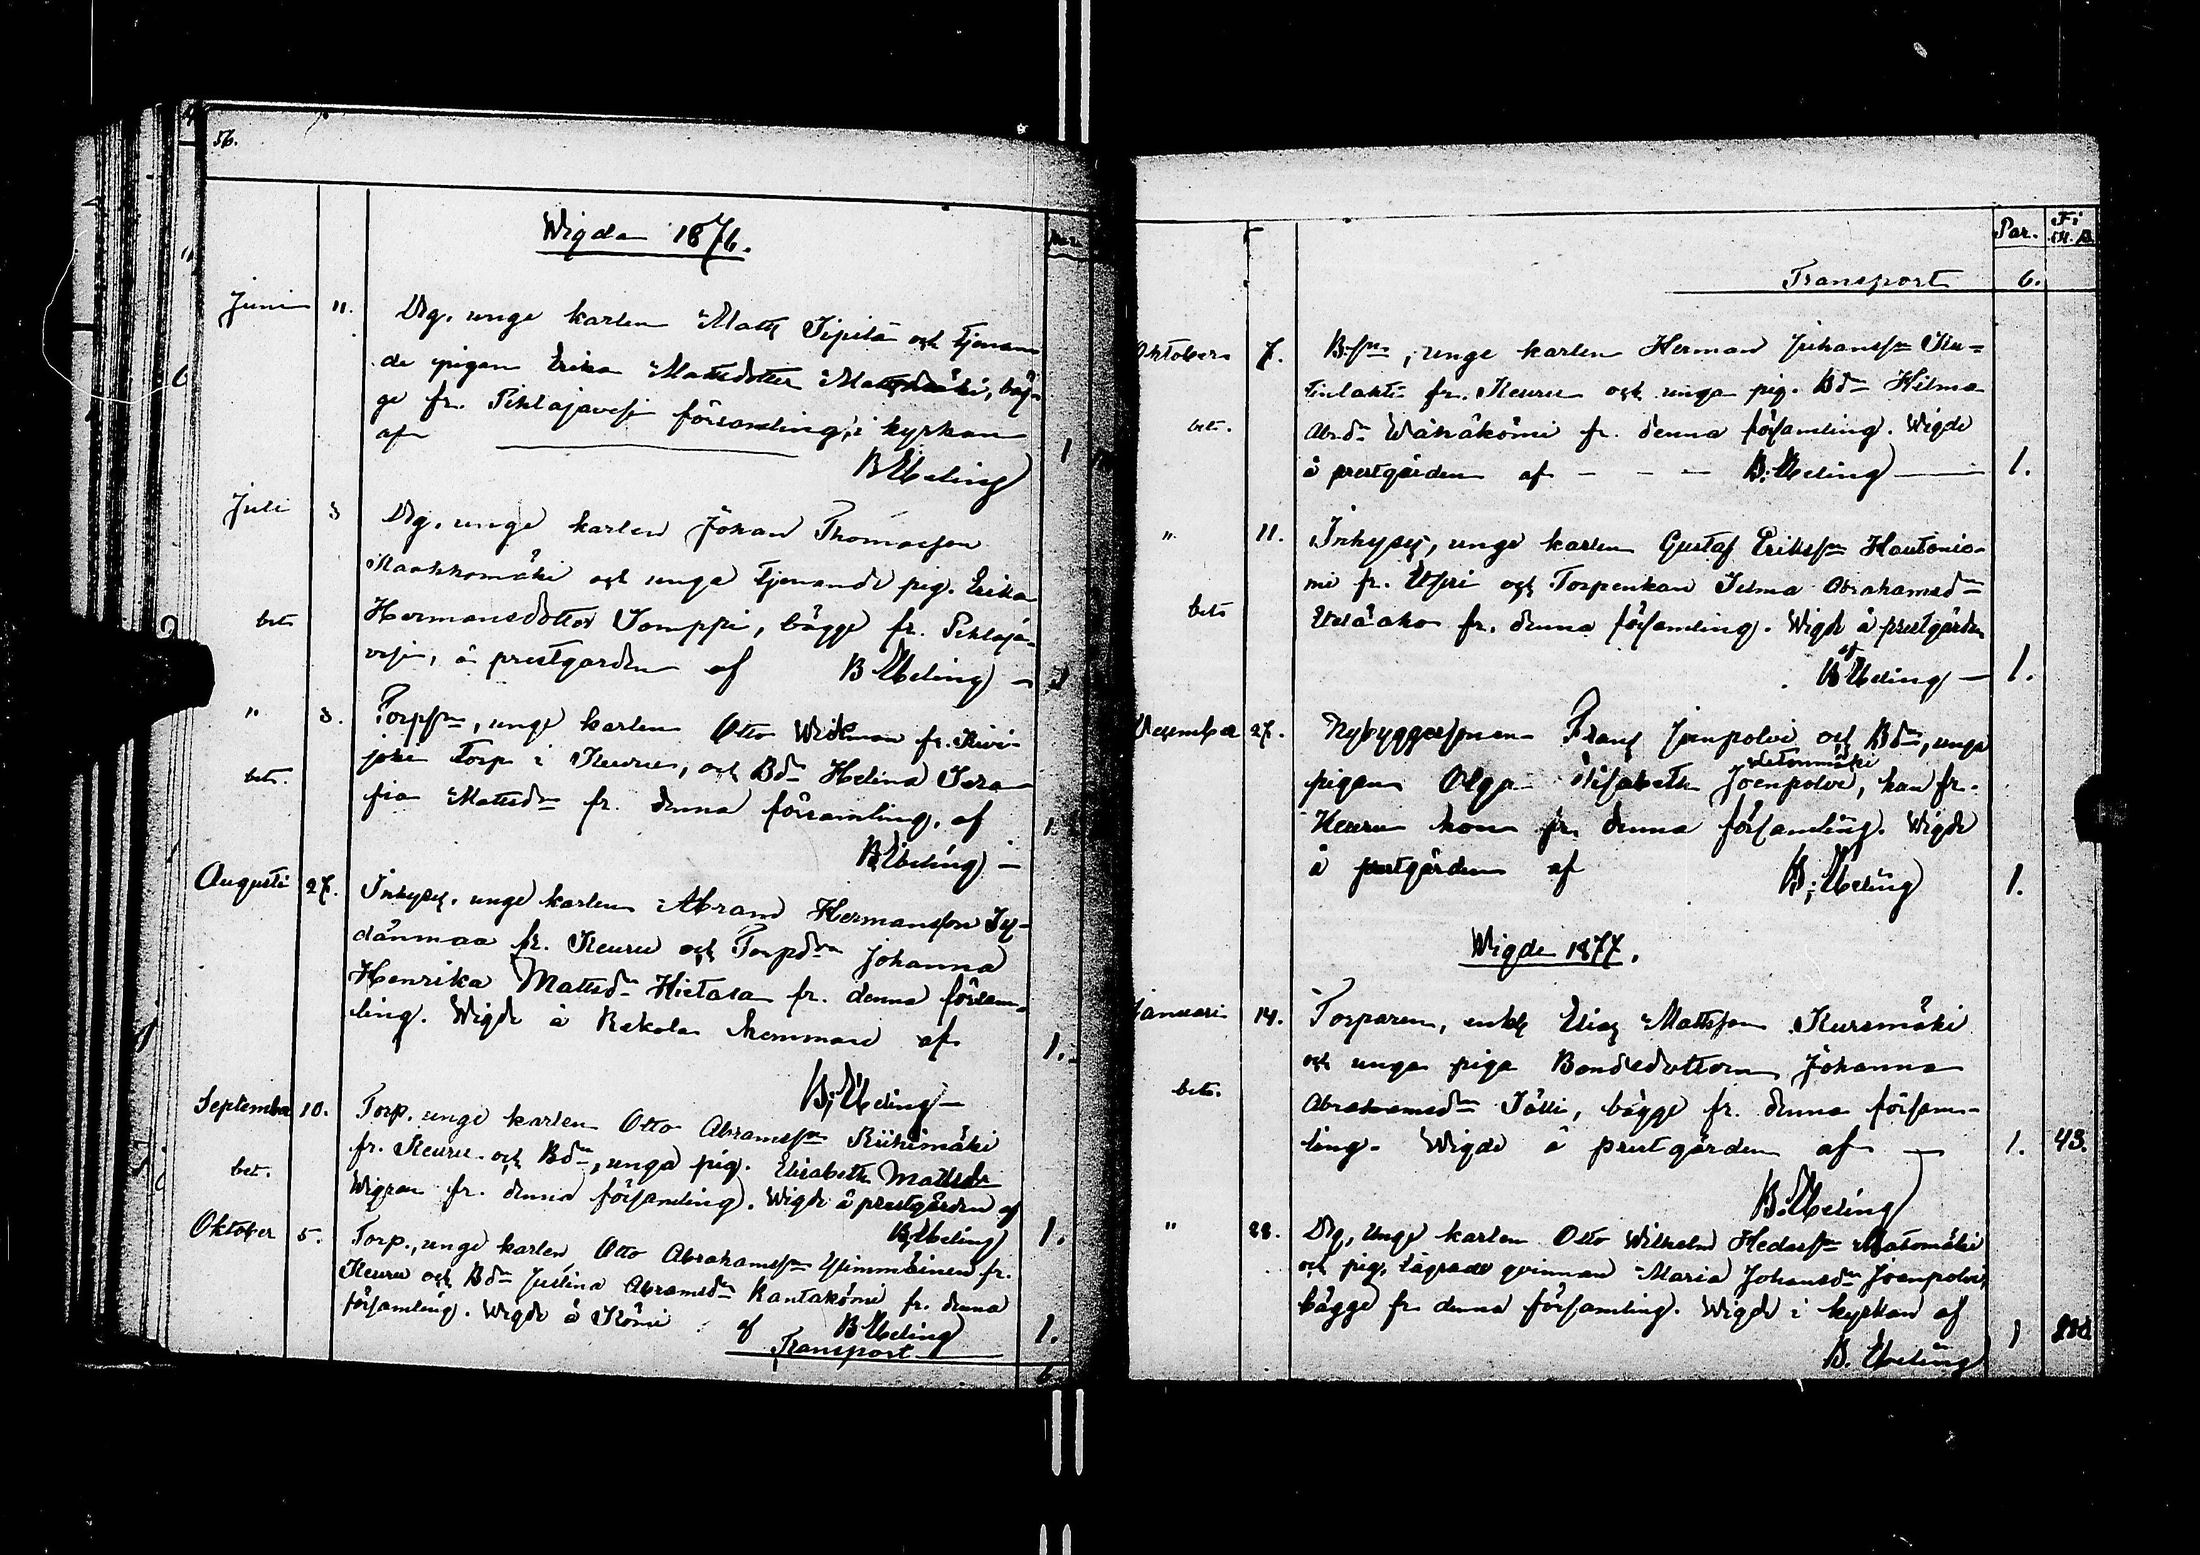 56.
Wigda 1876.
Par.
Juni 11. Drg. unge karlen Matts Sipilä och tjenan-
de pigan Erika Mattsdotter Mattsmäki, bäg-
ge fr. Pihlajavesi församling, i kyrkan
af
B Ebeling 1
Juli 3 Drg. unge karlen Johan Thomasson
Maahkomäki och unga tjenande pig. Erika
bet. Hermansdotter Somppi, bägge fr. Pihlaja-
vesi, å prestgården af B Ebeling — 1
" 3. Torpsn, unge karlen Otto Wickman fr. Kivi-
joki Torp i Keuru, och Bdn Helina Sera-
bet. fia Mattsdn fr. denna församling, af 1.
B. Ebeling —
Augusti 27. Inhyses. unge karlen Abram Hermansson Sy-
dänmaa fr. Keuru och Torpdn Johanna
Henrika Mattsdn Hietala fr. denna försam-
ling. Wigde å Kakola hemman af 1.
B; Ebeling —
September 10. Torp. unge karlen Otto Abramssn Riihimäki
fr. Keuru och Bdn, unga pig. Elisabeth Mattsdr
bet. fr. denna församling. Wigde å prestgården af
B; Ebeling 1.
Oktober 5. Torp., unge karlen Otto Abrahamssn fr.
Keuru och Bdn Justina Abramsdn Rantakömi fr. denna
församling. Wigde å Kömi af B Ebeling 1.
Transport 6
Par. Fi M. P.
Transport 6.
Oktober 7. B.sn, unge karlen Herman Juhanssn Ku-
tinlahti fr. Keuru och unga pig. Bdn Hilma
bet. Abrdn Wähäkömi fr. denna församling. Wigde
å prestgården af - - - B. Ebeling — 1.
" 11. Inhyses, unge karlen Gustaf Erikssn Hautonie-
mi fr. Etseri och Torpenkan Selma Abrahamsdn
bet. fr. denna församling. Wigde å prestgården
af
B Ebeling — 1.
December 27. Nybyggaresonen Frans Joenpolvi och Bdn, unga
pigan Olga Elisabeth Joenpolvi, han fr.
Keuru hon fr. denna församling. Wigde
å prestgården af B; Ebeling 1.
Wigde 1877.
Januari 14. Torparen, enkl. Elias Mattsson Kursmäki
och unga piga Bondedottern Johanna
bet. Abrahamsdn Sälli, bägge fr. denna försam-
ling. Wigde å prestgården af — 1. 43.
B. Ebeling
" 28. Drg, unge karlen Otto Wilhelm Hedassn Matomäki
och pig. lägrade qvinnan Maria Johansdn Joenpolvi,
bägge fr. denna församling. Wigde i kyrkan af
B. Ebeling 1